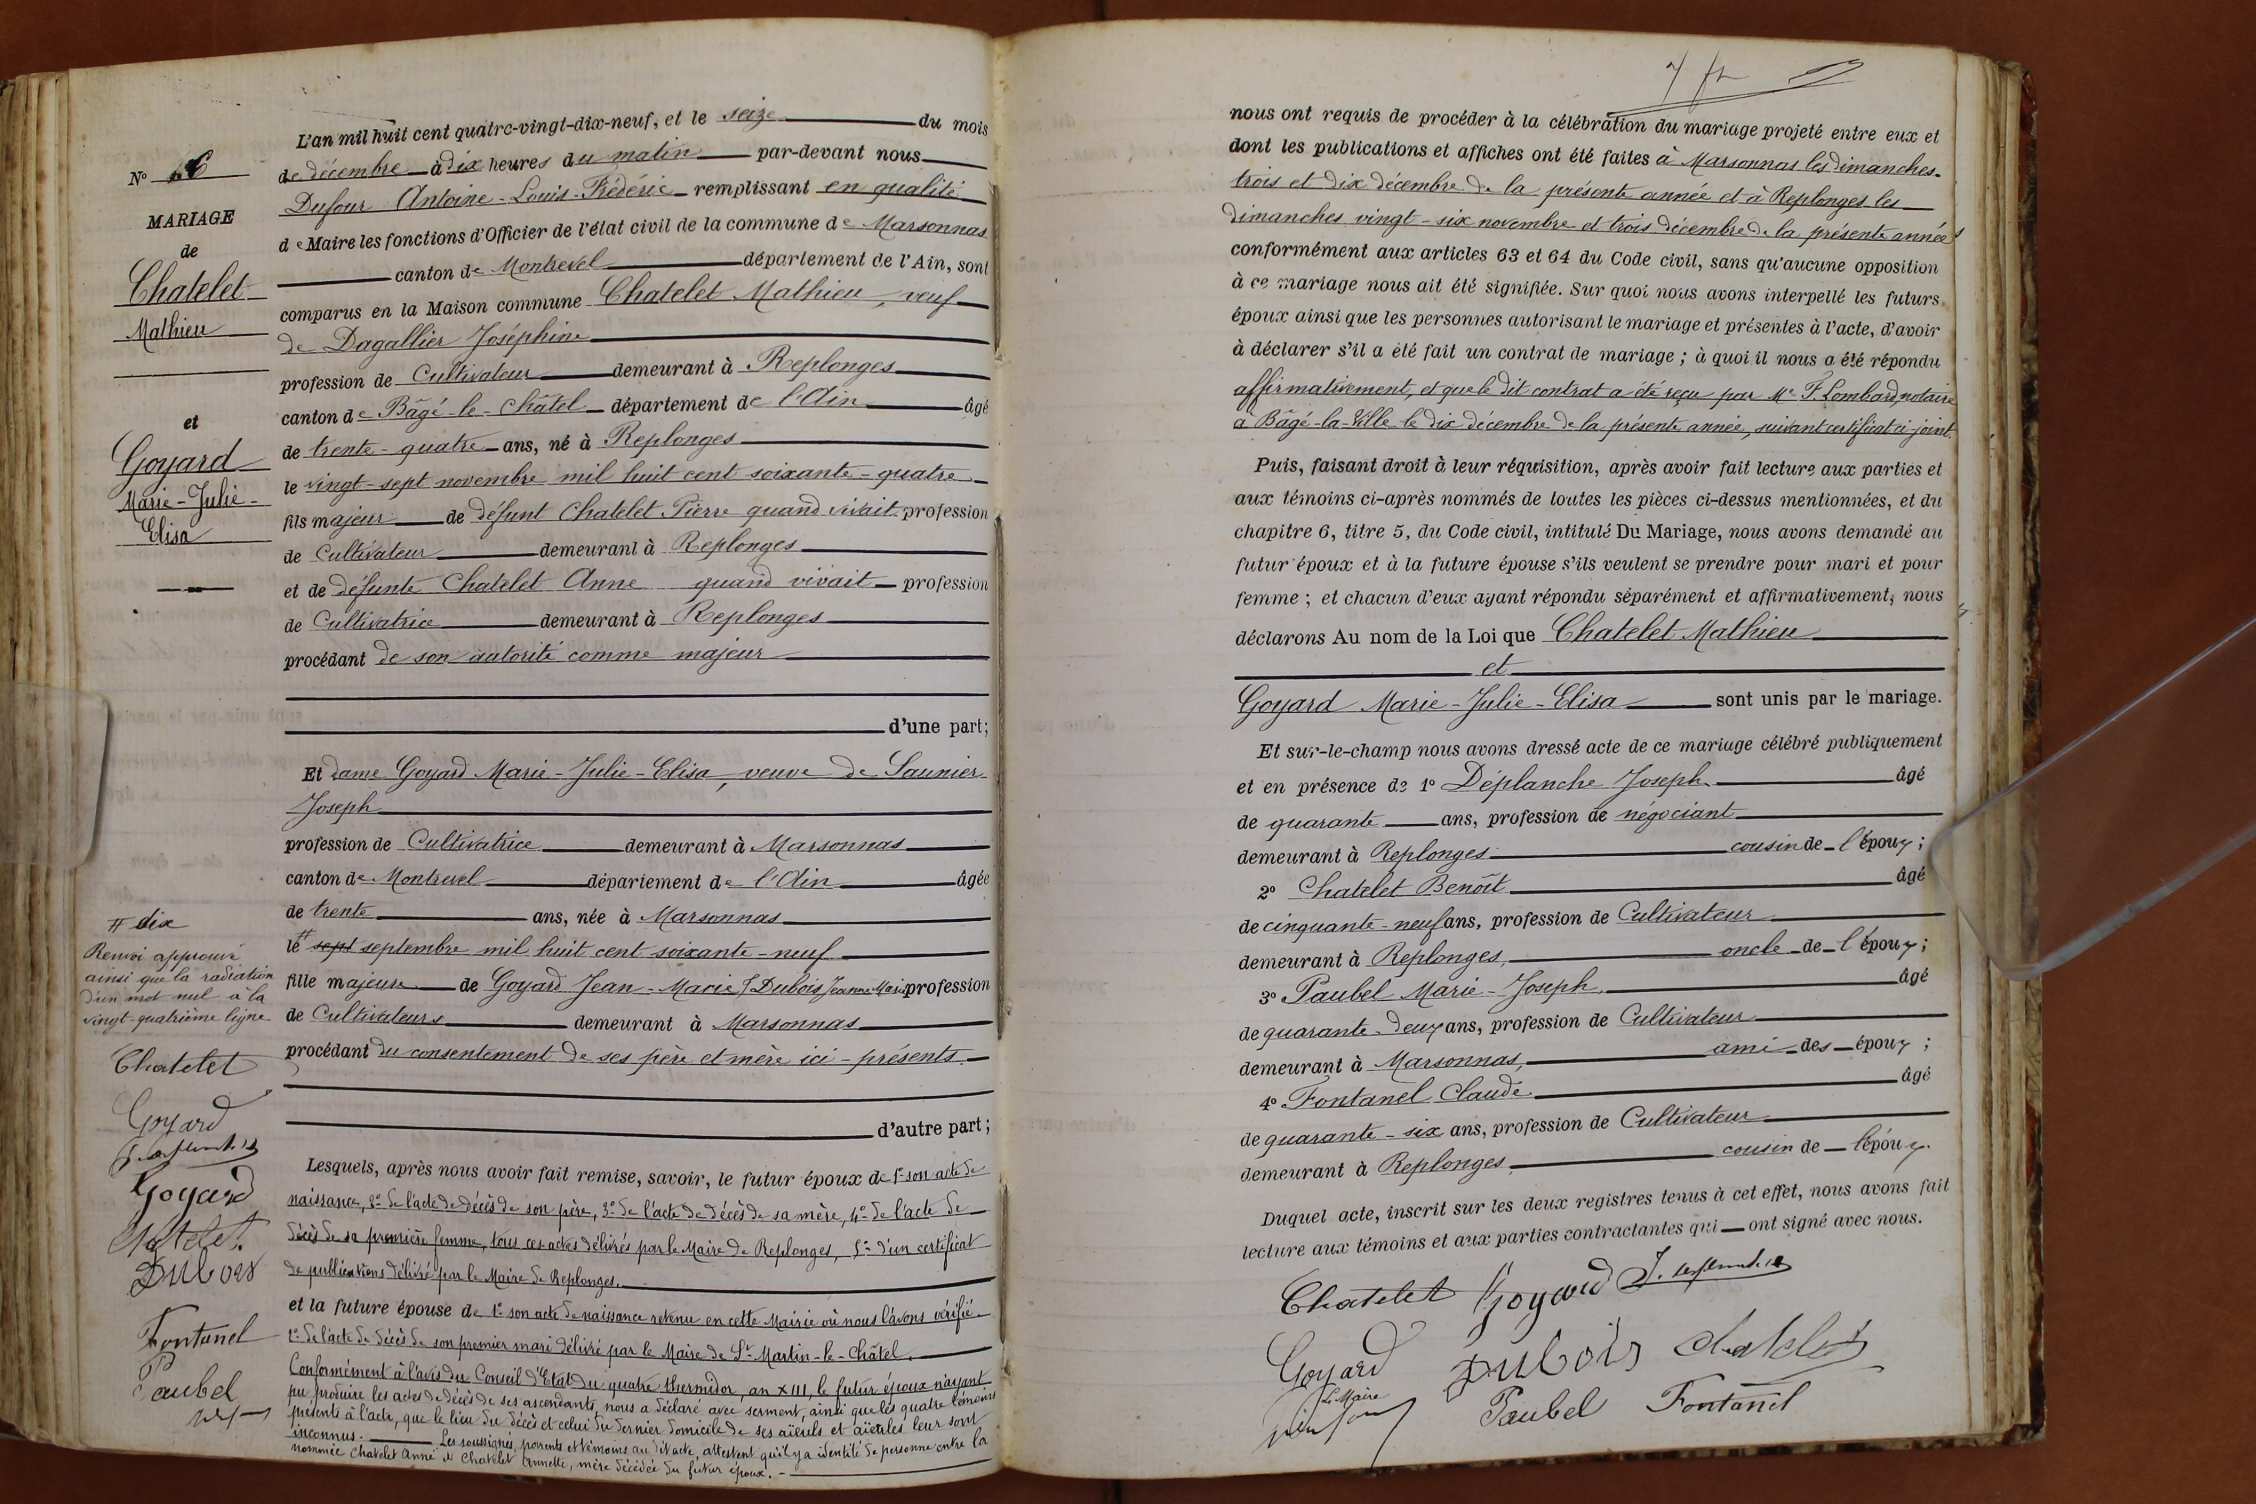 N°
MARIAGE
de
Chatelet
Mathieu
et
Goyard
Marie-Julie-
Elisa
L'an mil huit cent quatre-vingt-dix-neuf, et le seize du mois
de décembre à dix heures du matin par-devant nous
Dufour Antoine-Louis-Frédéric remplissant en qualité
de Maire les fonctions d'Officier de l'état civil de la commune de Marsonnas
canton de Montrevel département de l'Ain, sont
comparus en la Maison commune Chatelet Mathieu, veuf
de Dagallier Joséphine
profession de Cultivateur demeurant à Replonges
canton de Bâgé-le-Châtel département de l'Ain âgé
de trente-quatre ans, né à Replonges
le vingt-sept novembre mil huit cent soixante-quatre
fils majeur de défunt Chatelet Pierre quand vivait profession
de Cultivateur demeurant à Replonges
et de défunte Chatelet Anne quand vivait profession
de Cultivatrice demeurant à Replonges
procédant de son autorité comme majeur
d'une part;
Et dame Goyard Marie-Julie-Elisa, veuve de Saunier
Joseph
profession de Cultivatrice demeurant à Marsonnas
canton de Montrevel département de l'Ain âgée
de trente ans, née à Marsonnas
le # sept septembre mil huit cent soixante-neuf
fille majeure de Goyard Jean-Marie & Dubois Jeanne Marie profession
de Cultivateurs demeurant à Marsonnas
procédant du consentement de ses père et mère ici-présents
d'autre part;
Lesquels, après nous avoir fait remise, savoir, le futur époux de 1° son acte de
naissance, 2° de l'acte de décès de son père, 3° de l'acte de décès de sa mère, 4° de l'acte de
décès de sa première femme, tous ces actes délivrés par le Maire de Replonges, 5° d'un certificat
de publications délivré par le Maire de Replonges.
et la future épouse de 1° son acte de naissance retenu en cette Mairie où nous l'avons vérifié
2° de l'acte de décès de son premier mari délivré par le Maire de St Martin-le-Châtel.
Conformément à l'avis du Conseil d'Etat du quatre thermidor, an XIII, le futur époux n'ayant
pu produire les actes de décès de ses ascendants, nous a déclaré avec serment, ainsi que les quatre témoins
présents à l'acte, que le lieu du décès et celui du dernier domicile de ses aïeuls et aïeules leur sont
inconnus. Les soussignés, parents et témoins au dit acte, attestent qu'il y a identité de personne entre la
nommée Chatelet Anne et Chatelet Annette, mère décédée du futur époux.
# dix
Renvoi approuvé
ainsi que la radiation
d'un mot nul à la
vingt-quatrième ligne
Chatelet
Goyard
Goyard
Chatelet
Dubois
Fontanel
Paubel
nous ont requis de procéder à la célébration du mariage projeté entre eux et
dont les publications et affiches ont été faites à Marsonnas les dimanches
trois et dix décembre de la présente année et à Replonges les
dimanches vingt-six novembre et trois décembre de la présente année
conformément aux articles 63 et 64 du Code civil, sans qu'aucune opposition
à ce mariage nous ait été signifiée. Sur quoi nous avons interpellé les futurs
époux ainsi que les personnes autorisant le mariage et présentes à l'acte, d'avoir
à déclarer s'il a été fait un contrat de mariage ; à quoi il nous a été répondu
affirmativement, et que le dit contrat a été reçu par Me F. Lombard, notaire
à Bâgé-la-Ville le dix décembre de la présente année, suivant certificat ci-joint.
Puis, faisant droit à leur réquisition, après avoir fait lecture aux parties et
aux témoins ci-après nommés de toutes les pièces ci-dessus mentionnées, et du
chapitre 6, titre 5, du Code civil, intitulé Du Mariage, nous avons demandé au
futur époux et à la future épouse s'ils veulent se prendre pour mari et pour
femme ; et chacun d'eux ayant répondu séparément et affirmativement, nous
déclarons Au nom de la Loi que Chatelet Mathieu
et
Goyard Marie-Julie-Elisa sont unis par le mariage.
Et sur-le-champ nous avons dressé acte de ce mariage célébré publiquement
et en présence de 1° Déplanche Joseph âgé
de quarante ans, profession de négociant
demeurant à Replonges cousin de l'époux ;
2° Chatelet Benoît âgé
de cinquante-neuf ans, profession de Cultivateur
demeurant à Replonges, oncle de l'époux ;
3° Paubel Marie-Joseph, âgé
de quarante-deux ans, profession de Cultivateur
demeurant à Marsonnas, ami des époux ;
4° Fontanel Claude âgé
de quarante-six ans, profession de Cultivateur
demeurant à Replonges cousin de l'époux.
Duquel acte, inscrit sur les deux registres tenus à cet effet, nous avons fait
lecture aux témoins et aux parties contractantes qui ont signé avec nous.
Chatelet Goyard
Goyard Dubois Chatelet
Le Maire
Paubel Fontanel